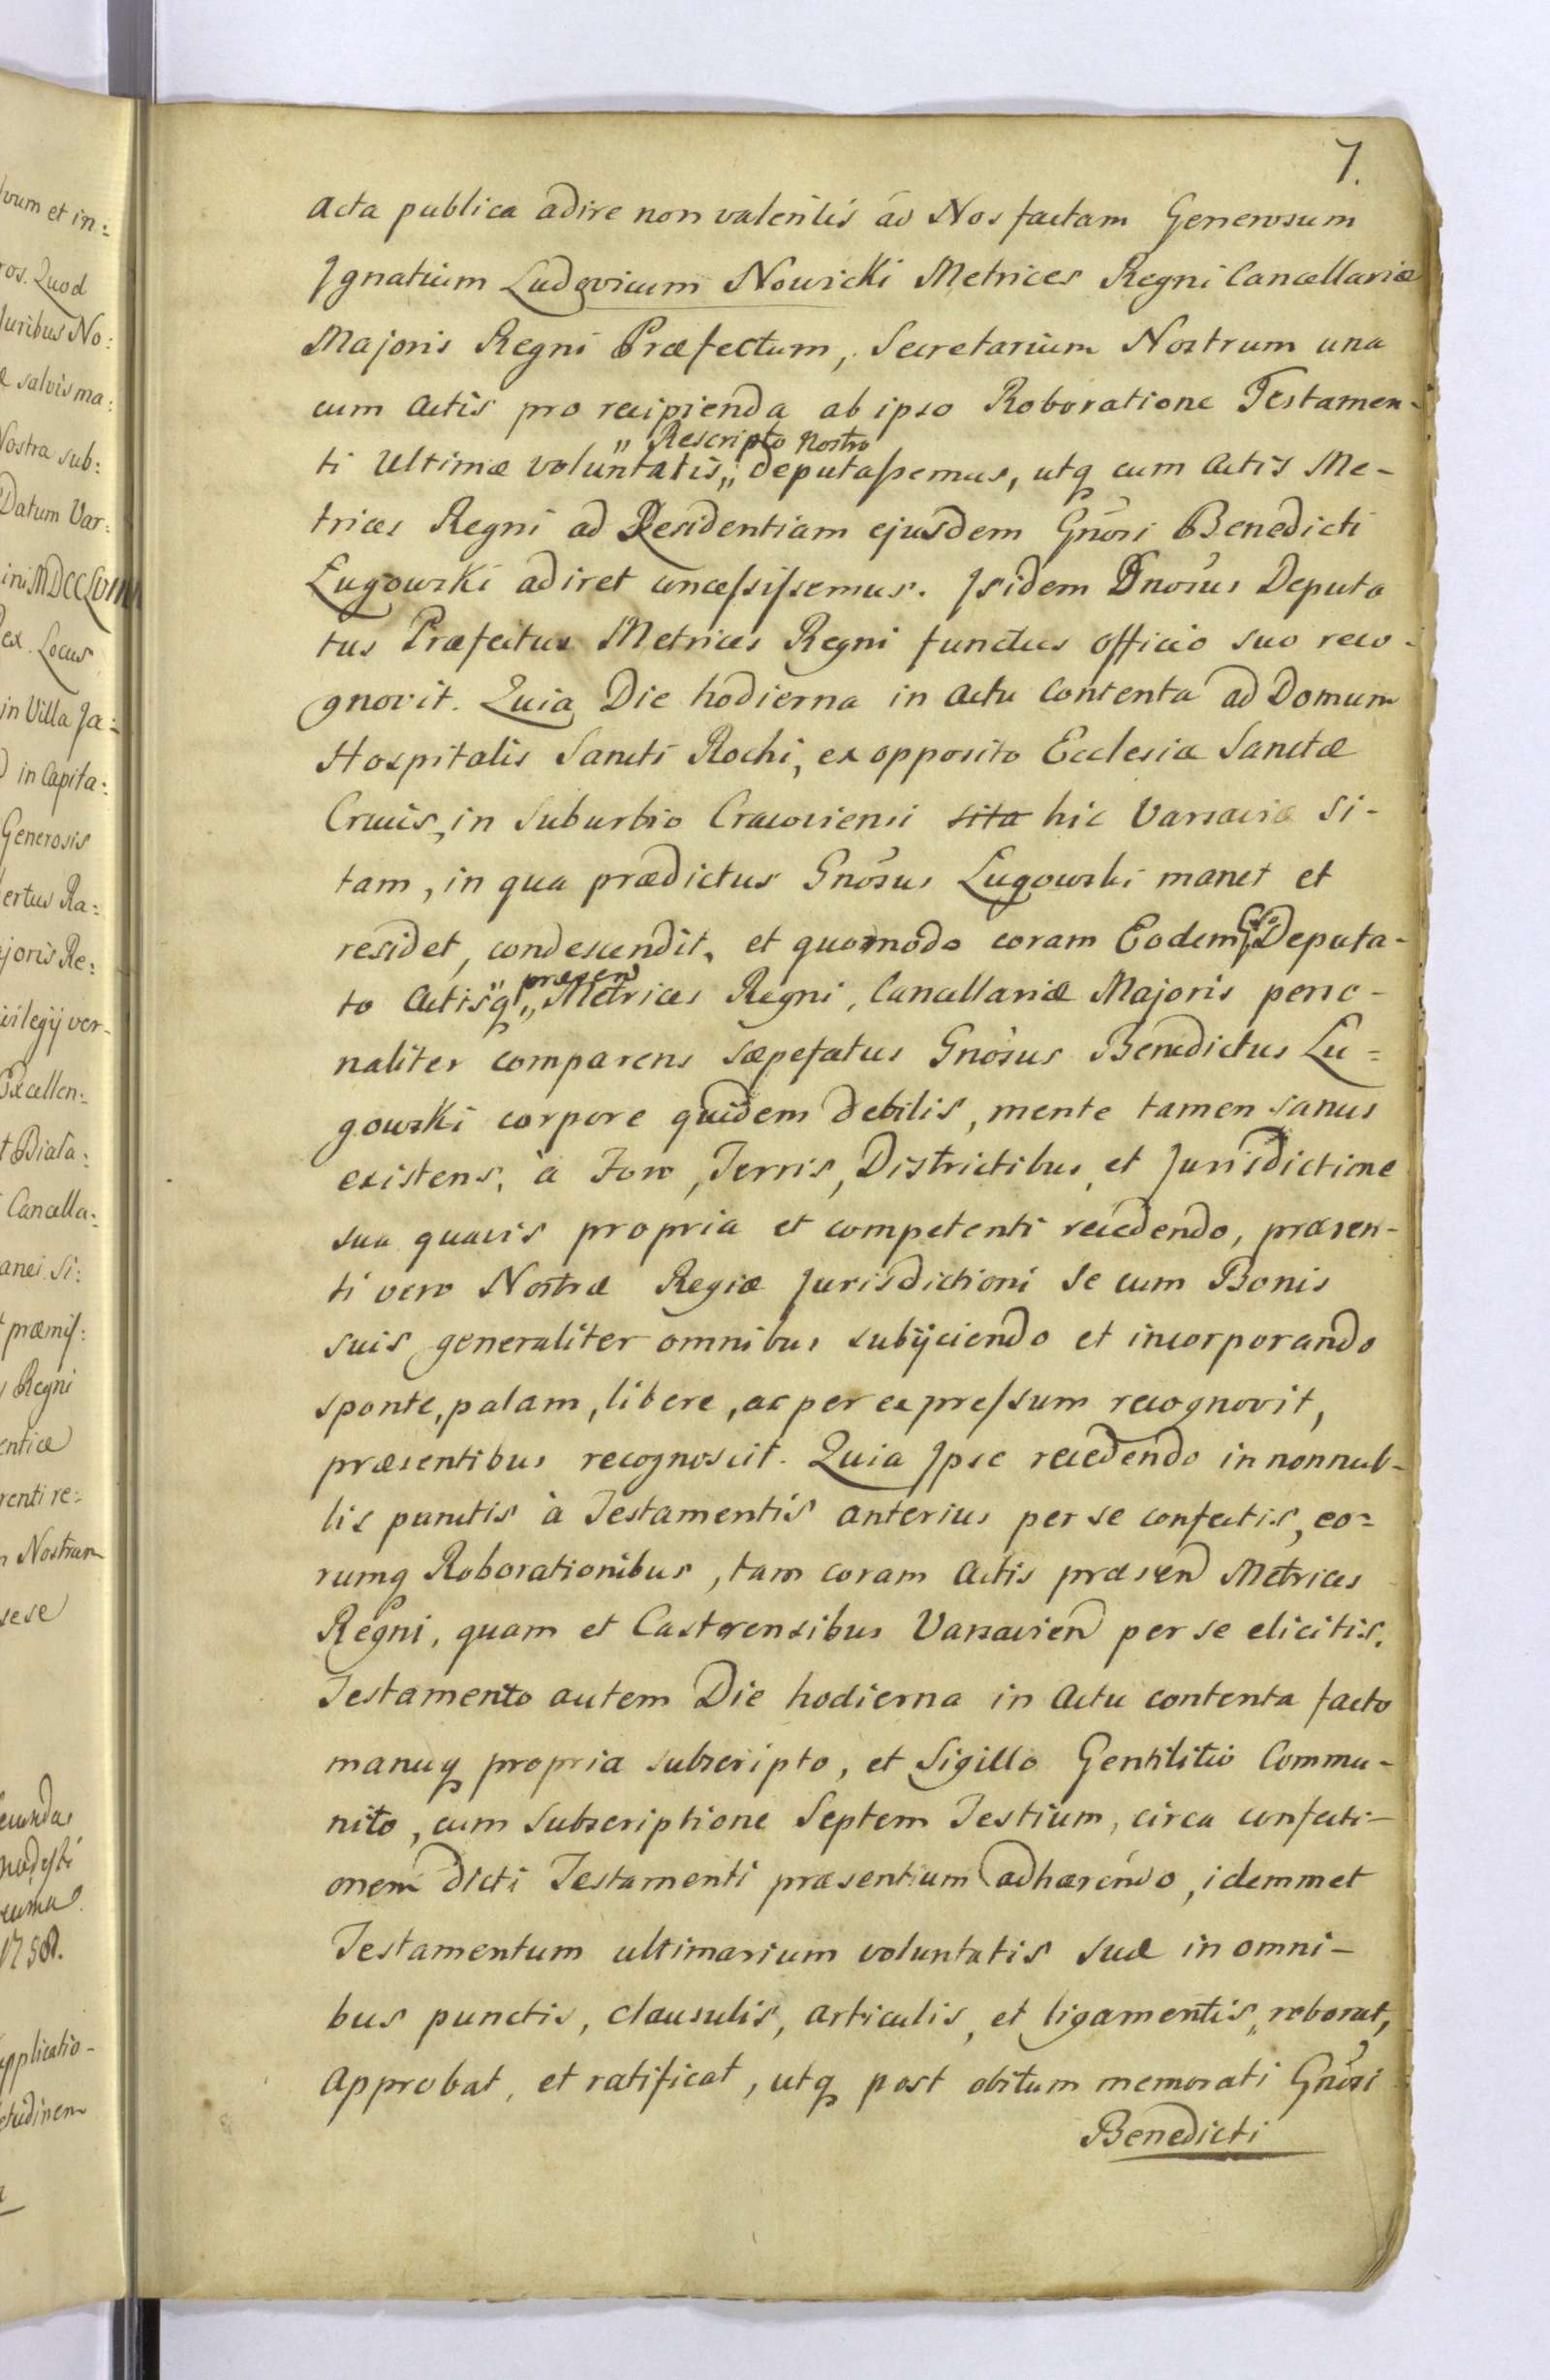 7.
acta publica adire non valentis ad Nos factam Generosum
Ignatium Ludovicum Nowicki Metrices Regni Cancellariæ
Majoris Regni Præfectum, Secretarium Nostrum una
cum actis pro recipienda ab ipso Roboratione Testamen-
ti Ultimæ voluntatis „ Rescripto Nostro „ deputassemus, utq cum actis Me-
trices Regni ad Residentiam ejusdem Gnosi Benedicti
Lugowski adiret concessissemus. Isidem Gnosus Deputa
tus Præfectus Metrices Regni functus officio suo reco-
gnovit. Quia Die hodierna in actu contenta ad Domum
Hospitalis Sancti Rochi, ex opposito Ecclesiæ Sanctæ
Crucis, in Suburbio Cracoviensi sita hic Varsaviæ si-
tam, in qua prædictus Gnosus Lugowski manet et
residet, condescendit, et quomodo coram Eodem Gso Deputa-
to Actisq „ præsen „ Metrices Regni, Cancellariæ Majoris perso-
naliter comparens sæpefatus Gnosus Benedictus Lu=
gowski corpore quidem debilis, mente tamen sanus
existens, à Foro, Terris, Districtibus, et Jurisdictione
sua quavis propria et competenti recedendo, præsen-
ti vero Nostræ Regiæ Jurisdictioni se cum Bonis
suis generaliter omnibus subijciendo et incorporando
sponte, palam, libere, ac per expressum recognovit,
præsentibus recognoscit. Quia Ipse recedendo in nonnul-
lis punctis à Testamentis anterius per se confectis, eo=
rumq Roborationibus, tam coram actis præsen Metrices
Regni, quam et Castrensibus Varsavien per se elicitis.
Testamento autem Die hodierna in actu contenta facto
manuq propria subscripto, et Sigillo Gentilitio Commu-
nito, cum Subscriptione Septem Testium, circa confecti-
onem dicti Testamenti præsentium adhærendo, idemmet
Testamentum ultimarium voluntatis suæ in omni-
bus punctis, clausulis, articulis, et ligamentis, roborat,
approbat, et ratificat, utq post obitum memorati Gnosi
Benedicti
vum et in:
ros. Quod
Juribus No:
salvis ma:
Nostra sub:
Datum Var:
ex. Locus
in Villa Ja:
in Capita:
Generosis
ertus Ra:
joris Re:
vilegij ver-
Excellen:
Biała:
Cancella:
anei. Si:
præmis:
Regni
entiæ
renti re:
Nostram
sese
1758.
applicatio-
etudinem